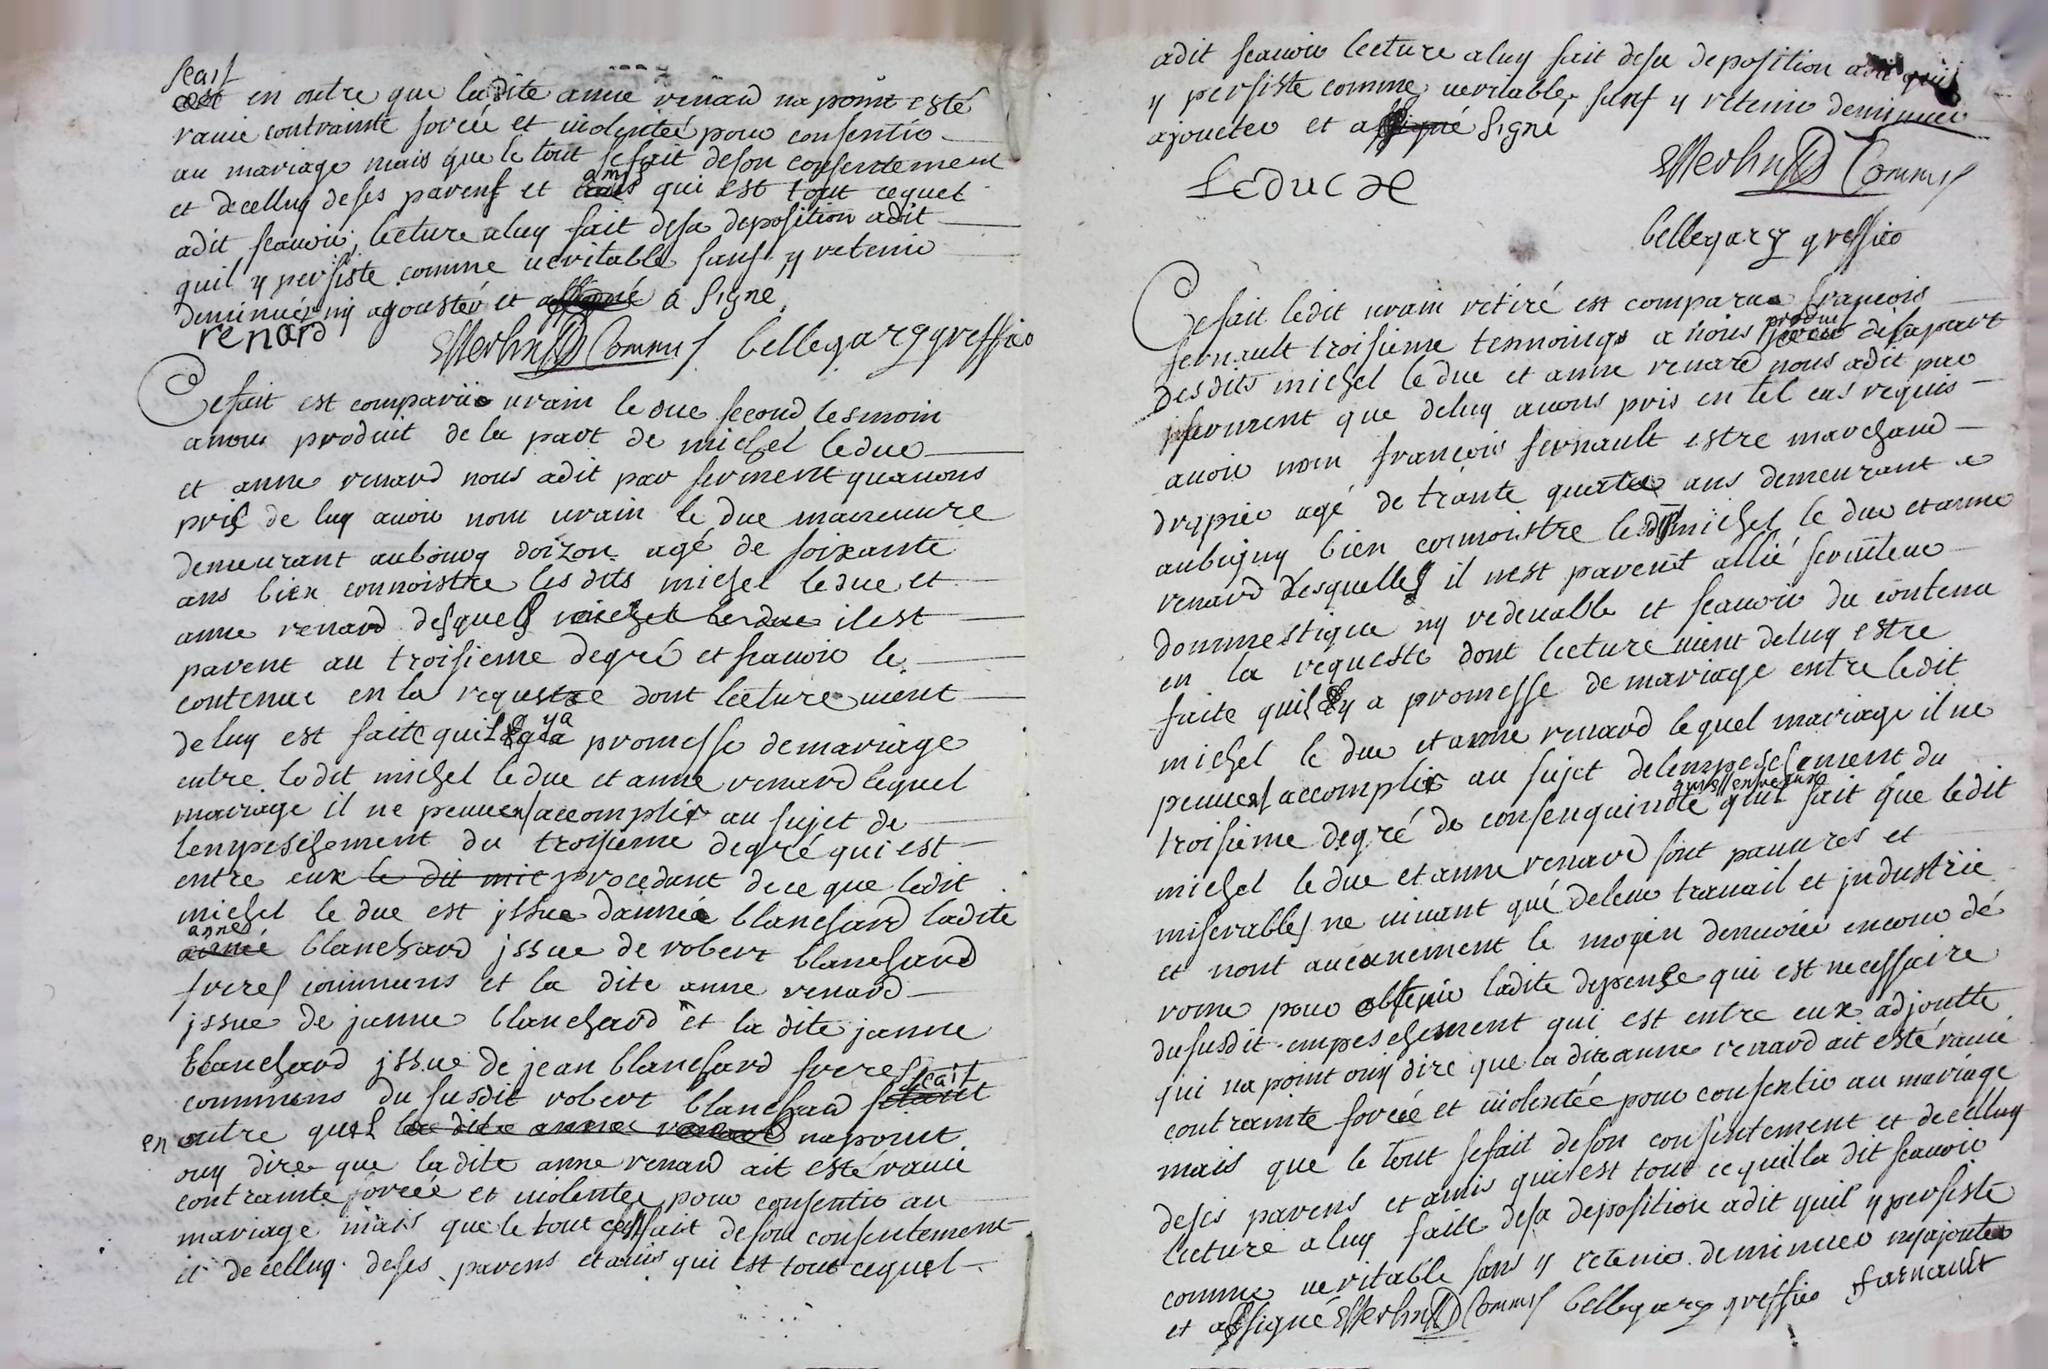 scait
en outre que laditte anne renard na point esté
ravie contrainte forcée et violentée pour consentir
au mariage mais que le tout se fait deson consentement
et decelluy deses parens et amis qui est tout cequel
adit scauoir, lecture aluy fait desa deposition adit
quil y persiste comme ueritable sans y retenir
deminuer ny agouster et a signe
renard
commis bellegarg greffier
Cefait est comparue urain le duc second tesmoin
anous produit de la part de michel leduc
et anne renard nous adit par serment quauons
pris de luy auoir nom urain le duc maneuure
demeurant aubourg doizon agé de soixante
ans bien connoistre lesdits michel leduc et
anne renard desquels michel leduc il est
parent au troisieme degré et scauoir le
contenue en la requeste dont lecture uient
deluy est faite quil ya promesse demariage
entre ledit michel leduc et anne renard lequel
mariage il ne peuuent accomplir au sujet de
lempeschement du troisieme degré qui est
entre eux le dit mic procedant de ce que ledit
michel le duc est issue dannée blanchard ladite
anne blanchard jssue de robert blanchard
freres communs et la dite anne renard
jssue de janne blanchard et la dite janne
blanchard jssue de jean blanchard freres
communs du susdit robert blanchard scait
en outre quil la dite anne renard na point
ouy dire que la dite anne renard ait esté ravie
contrainte forcée et uiolentée pour consentir au
mariage mais que le tout fait deson consentement
et decelluy deses parens et amis qui est tout cequel
adit scauoir lecture aluy fait desa deposition adit quil
y persiste comme ueritable sans y retenir deminuer
ajoucter et a signé
leduc
commis
bellegarg greffier
Cefait ledit urain retiré est comparue françois
fernault troisieme temoing a nous produit delapart
desdits michel le duc et anne renard nous adit par
serment que deluy auons pris en tel cas requis
auoir nom françois fernault estre marchand
drapier agé de trante quatre ans demeurant a
aubigny bien connoistre lesdit michel le duc et anne
renard desquelles il nest parent allié seruiteur
dommestique ny redeuable et scauoir du contenu
en la requeste dont lecture uient deluy estre
faite quil y a promesse de mariage entre ledit
michel le duc et anne renard lequel mariage il ne
peuuent accomplir au sujet delempeschement du
troisieme degré de consenguinité fait que ledit
michel le duc et anne renard sont pauures et
miserables ne uiuant que deleur trauail et jndustrie
et nont aucunement le moyen denuoier encour dé
rome pour obtenir ladite depense qui est necessaire
dususdit empeschement qui est entre eux adjoutte
qui na point ouy dire que la dite anne renard ait esté rauie
contrainte forcée et uiolentée pour consentir au mariage
mais que le tout sefait deson consentement et decelluy
deses parens et amis qui est tout ce quil la dit scauoir
lecture a luy faite desa deposition adit quil y persiste
comme ueritable sans y retenir deminuer ny ajouter
et a signé commis bellegarg greffier farnault